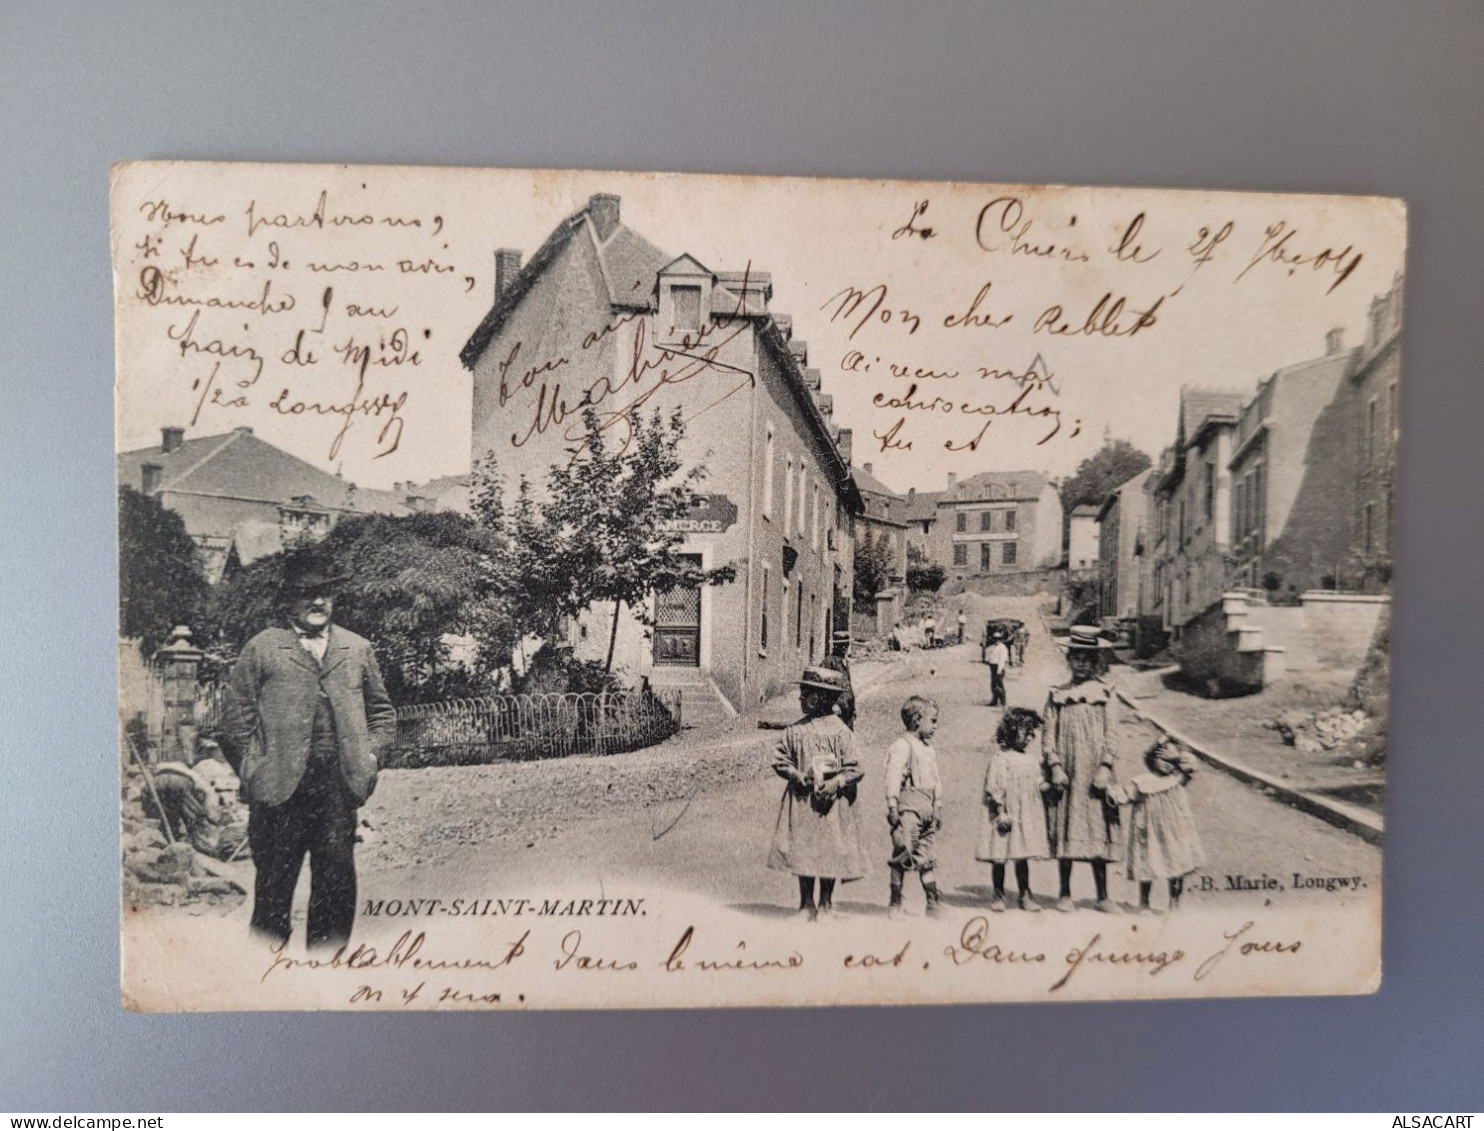 La Chiers le 27 7bre 04
Mon cher Reblet
Ai reçu ma
convocation,
tu et
probablement dans le même cas. Dans quinze jours
on y sera.
Nous partirons,
si tu es de mon avis,
Dimanche 9 au
train de Midi
1/2 à Longwy
Ton ami
Mahieu
MERCE
MONT-SAINT-MARTIN.
.-B. Marie, Longwy.
ALSACART